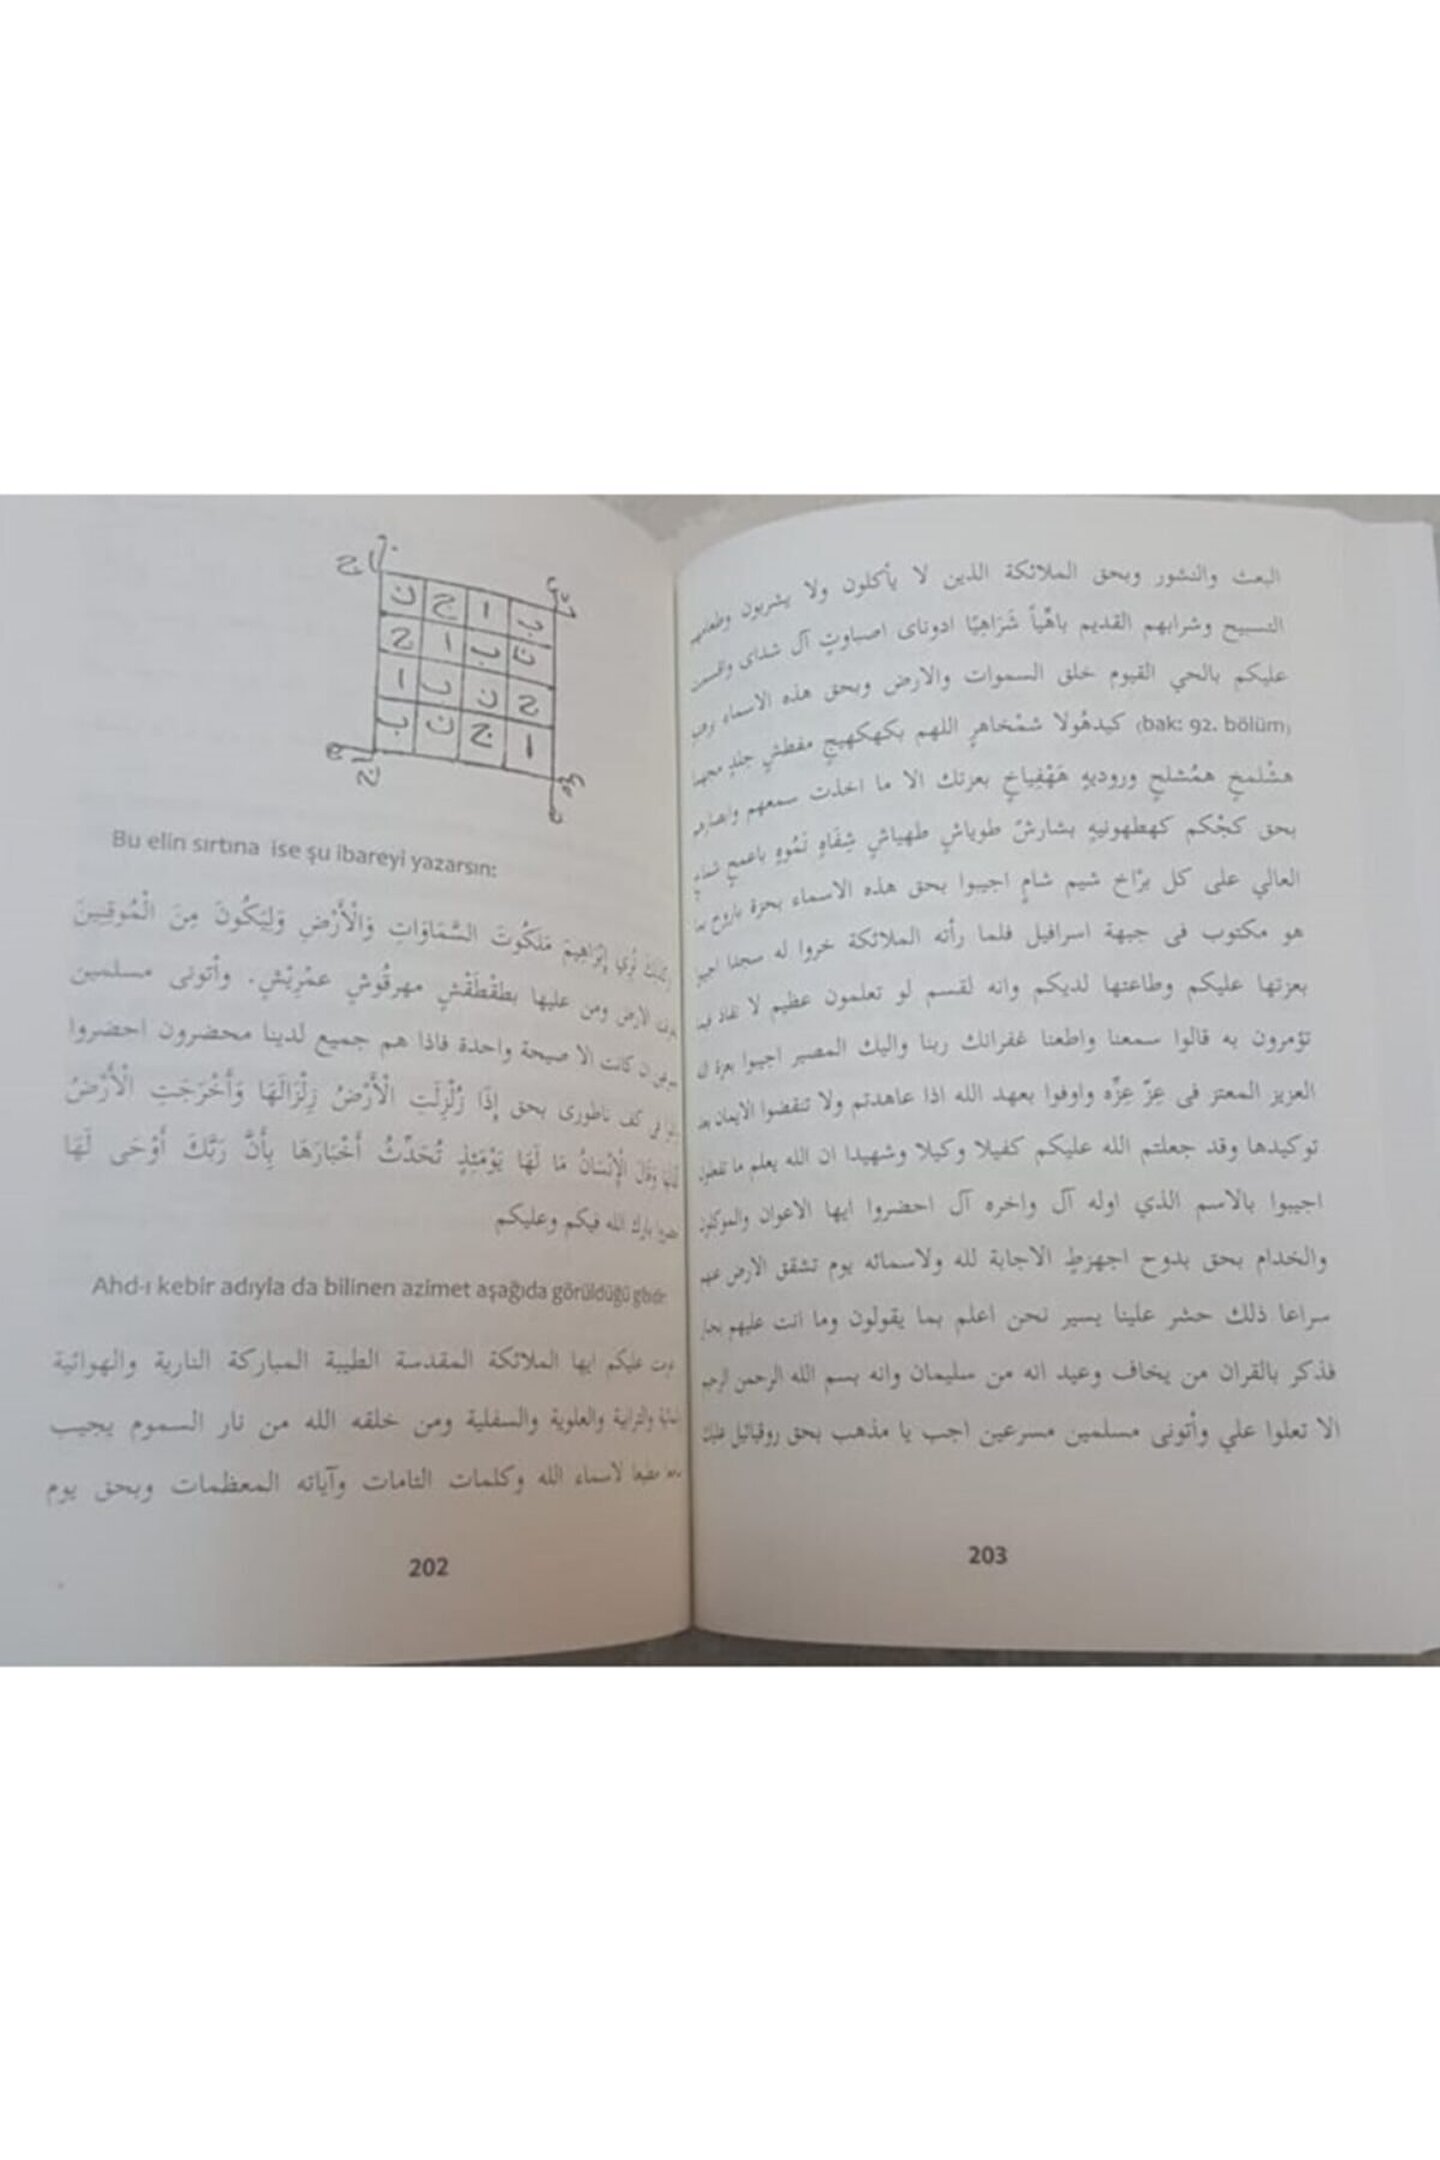 ن ج ا ب
ج ا ب ن
ا ب ن ج
ب ن ج ا
Bu elin sırtına ise şu ibareyi yazarsın:
نُرِي إِبْرَاهِيمَ مَلَكُوتَ السَّمَاوَاتِ وَالْأَرْضِ وَلِيَكُونَ مِنَ الْمُوقِنِينَ
الارض ومن عليها بطقْطَقْشٍ مهرقُوشٍ عمْرِيْشٍ. وأتونى مسلمين
ان كانت الا صيحة واحدة فاذا هم جميع لدينا محضرون احضروا
فى كف ناطورى بحق إِذَا زُلْزِلَتِ الْأَرْضُ زِلْزَالَهَا وَأَخْرَجَتِ الْأَرْضُ
وَقَالَ الْإِنْسَانُ مَا لَهَا يَوْمَئِذٍ تُحَدِّثُ أَخْبَارَهَا بِأَنَّ رَبَّكَ أَوْحَى لَهَا
بارك الله فيكم وعليكم
Ahd-ı kebir adıyla da bilinen azimet aşağıda görüldüğü gibidir:
عليكم ايها الملائكة المقدسة الطيبة المباركة النارية والهوائية
والترابية والعلوية والسفلية ومن خلقه الله من نار السموم يجيب
مطيعا لاسماء الله وكلمات التامات وآياته المعظمات وبحق يوم
202
البعث والنشور وبحق الملائكة الذين لا يأكلون ولا يشربون وطعامهم
التسبيح وشرابهم القديم باهْيَاً شَرَاهِيَا ادوناى اصباوتٍ آل شداى
عليكم بالحي القيوم خلق السموات والارض وبحق هذه الاسماء
(bak: 92. bölüm) كيدهُولا شمْخاهرٍ اللهم بكهكهيجٍ مفطشٍ جلدٍ
هشْلمخٍ همْشلحٍ وروديهٍ هَهْفِياخٍ بعزتك الا ما اخذت سمعهم وابصارهم
بحق كجْكم كهطهونيهٍ بشارشٍ طوياشٍ طهياشٍ شِفَاهٍ نَمُوهٍ باعميعٍ
العالي على كل برّاخ شيم شامٍ اجيبوا بحق هذه الاسماء بحرة ياروح
هو مكتوب فى جبهة اسرافيل فلما رأته الملائكة خروا له سجدا
بعزتها عليكم وطاعتها لديكم وانه لقسم لو تعلمون عظيم لا
تؤمرون به قالوا سمعنا واطعنا غفرانك ربنا واليك المصير اجيبوا بعزة
العزيز المعتز فى عِزّ عِزِّه واوفوا بعهد الله اذا عاهدتم ولا تنقضوا الايمان بعد
توكيدها وقد جعلتم الله عليكم كفيلا وكيلا وشهيدا ان الله يعلم ما
اجيبوا بالاسم الذي اوله آل واخره آل احضروا ايها الاعوان
والخدام بحق بدوح اجهزطٍ الاجابة لله ولاسمائه يوم تشقق الارض عنهم
سراعا ذلك حشر علينا يسير نحن اعلم بما يقولون وما انت عليهم
فذكر بالقران من يخاف وعيد انه من سليمان وانه بسم الله الرحمن الرحيم
الا تعلوا علي وأتونى مسلمين مسرعين اجب يا مذهب بحق روقيائيل
203